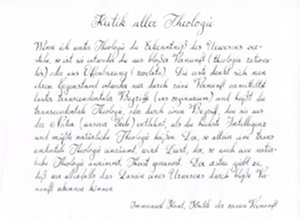 Kritik aller Theologie
Wenn ich unter Theologie die Erkenntniß des Urwesens ver-
stehe, so ist sie entweder die aus bloßer Vernunft (theologia rationa-
lis) oder aus Offenbarung (revelata). Die erste denkt sich nun
ihren Gegenstand entweder nur durch reine Vernunft vermittelst
lauter transcendentaler Begriffe (ens                ) und heißt die
transcendentale Theologie oder durch einen Begriff, den sie aus
der Natur (unserer Seele) entlehnt, als die höchste Intelligenz
und müßte natürliche Theologie heißen. Der, so allein eine trans-
cendentale Theologie einräumt, wird Deist, der, so auch eine natür-
liche Theologie annimmt, Theist genannt. Der erstere gibt zu,
daß wir allenfalls das Dasein eines Urwesens durch bloße Ver-
nunft erkennen können
Immanuel Kant, Kritik der reinen Vernunft